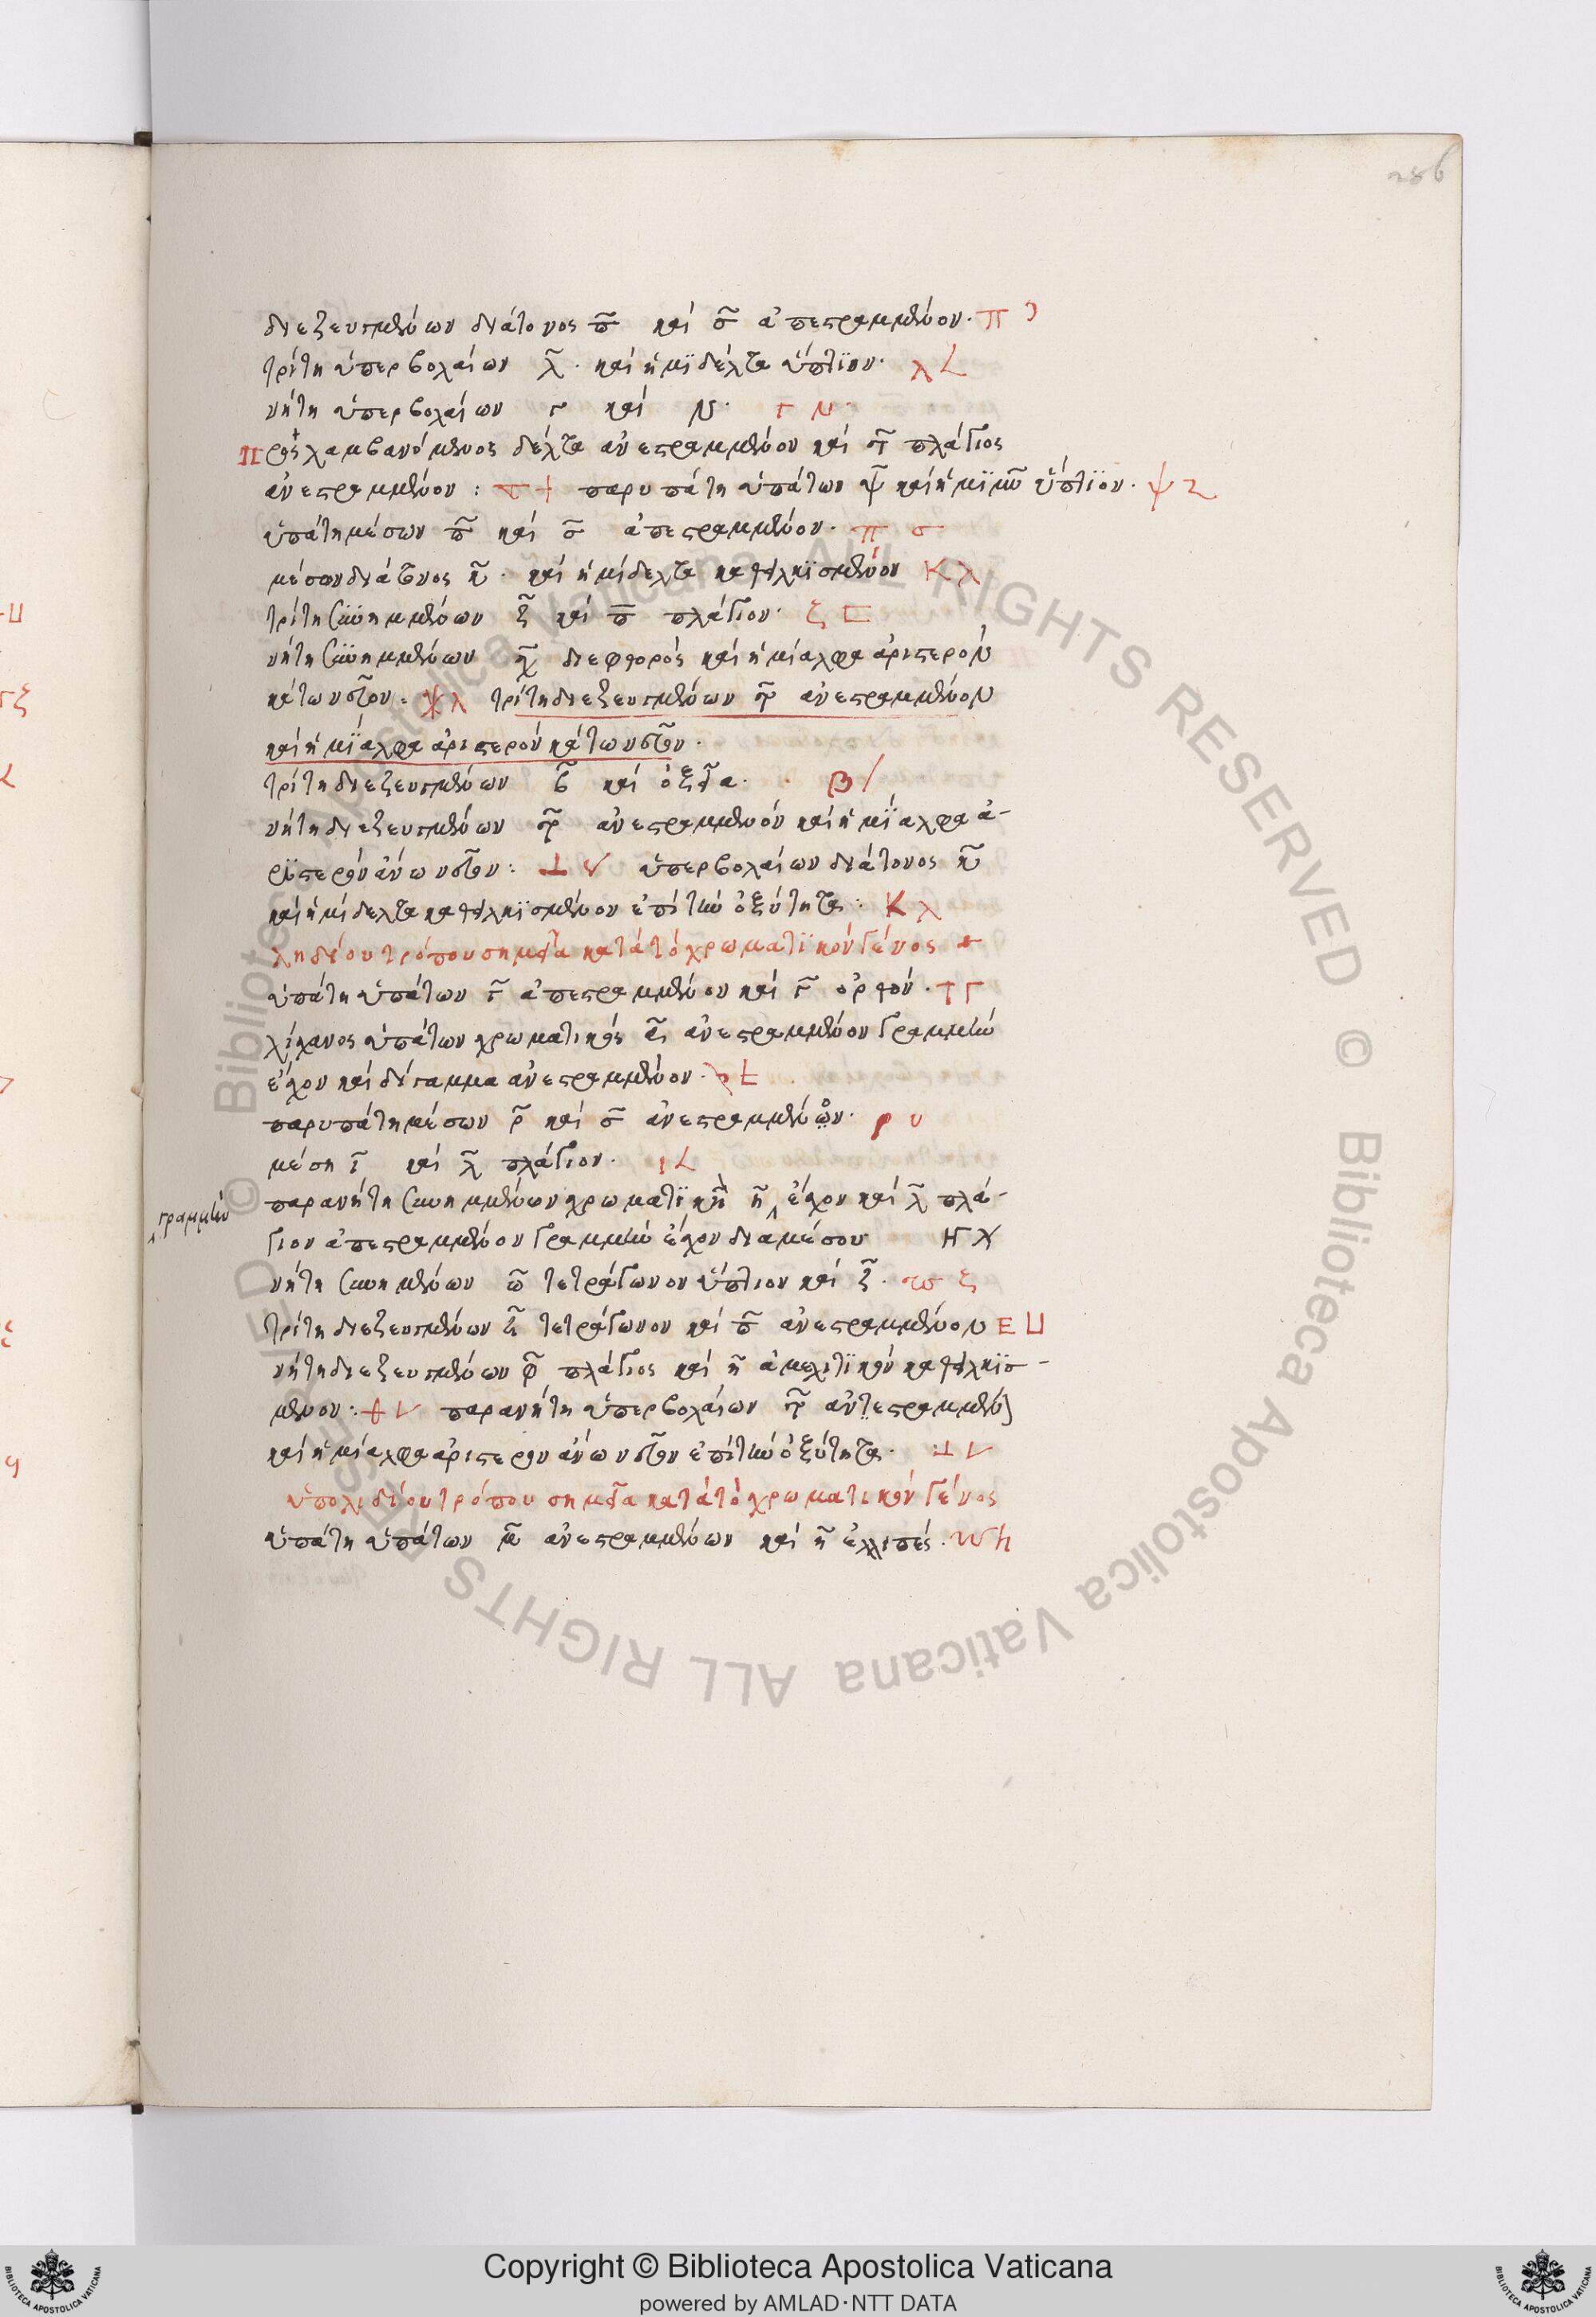 286
διεζευγμένων διάτονος π̃ καὶ σ̃ ἀπεστραμμένον. π ͻ
τρίτη ὑπερβολαίων λ̃. καὶ ἡμιδέλτα ὕπτιον. λ
νήτη ὑπερβολαίων γ καὶ Ν. Γ Ν.
Προσλαμβανόμενος δέλτα ἀνεστραμμένον καὶ πλάγιος
ἀνεστραμμένον: παρυπάτη ὑπάτων ψ̃ καὶ ἡμι ὕπτιον. ψ
ὑπάτη μέσων π̃ καὶ σ̃ ἀπεστραμμένον. π σ
μέσων διάτονος κ̃. καὶ ἡμίδελτα καθειλκισμένον Κ λ
τρίτη συνημμένων ξ̃ καὶ π̃ πλάγιον. ξ ⊏
νήτη συνημμένων διεφθορὸς καὶ ἡμίαλφα ἀριστερὸν
κάτω νεῦον: τρίτη διεζευγμένων ἀνεστραμμένον
καὶ ἡμίαλφα ἀριστερὸν κάτω νεῦον.
τρίτη διεζευγμένων β̃ καὶ ὀξεῖα. Β /
νήτη διεζευγμένων ἀνεστραμμενόν καὶ ἡμίαλφα ἀ-
ριστερὸν ἄνω νεῦον: ⊥ ὑπερβολαίων διάτονος κ̃
καὶ ἡμίδελτα καθειλκισμένον ἐπὶ τὴν ὀξύτητα: Κ λ
λυδίου τρόπου σημεῖα κατὰ τὸ χρωματικὸν γένος
ὑπάτη ὑπάτων γ̃ ἀπεστραμμένον καὶ γ̃ ὀρθόν. Γ
λίχανος ὑπάτων χρωματικὸς ἀνεστραμμένον γραμμὴν
ἔχον καὶ δίγαμμα ἀνεστραμμένον.
παρυπάτη μέσων ρ̃ καὶ σ̃ ἀνεστραμμένον. ρ υ
μέση ι̃ καὶ λ̃ πλάγιον. ι
παρανήτη συνημμένων χρωματικὴ η̃ ‸ ἔχον καὶ λ̃ πλά-
‸γραμμὴν
γιον ἀπεστραμμένον γραμμὴν ἔχον διὰ μέσου
νήτη συνημένων ω̃ τετράγωνον ὕπτιον καὶ ξ̃. ξ
τρίτη διεζευγμένων ε̃ τετράγωνον καὶ π̃ ἀνεστραμμένον Ε ⊔
νήτη διεζευγμένων φ̃ πλάγιος καὶ η̃ ἀμελητικὸν καθειλκισ-
μένον: παρανήτη ὑπερβολαίων ἀντεστραμμέν
καὶ ἡμίαλφα ἀριστερὸν ἄνω νεῦον ἐπὶ τὴν ὀξύτητα. ⊥
ὑπολιδίου τρόπου σημεῖα κατὰ τὸ χρωματικὸν γένος
ὑπάτη ὑπάτων ἀνεστραμμένων καὶ η̃ ἐλλιπές. h
Copyright © Biblioteca Apostolica Vaticana
powered by AMLAD·NTT DATA
© Biblioteca Apostolica Vaticana ALL RIGHTS RESERVED © Biblioteca Apostolica Vaticana ALL RIGHTS RESERVED